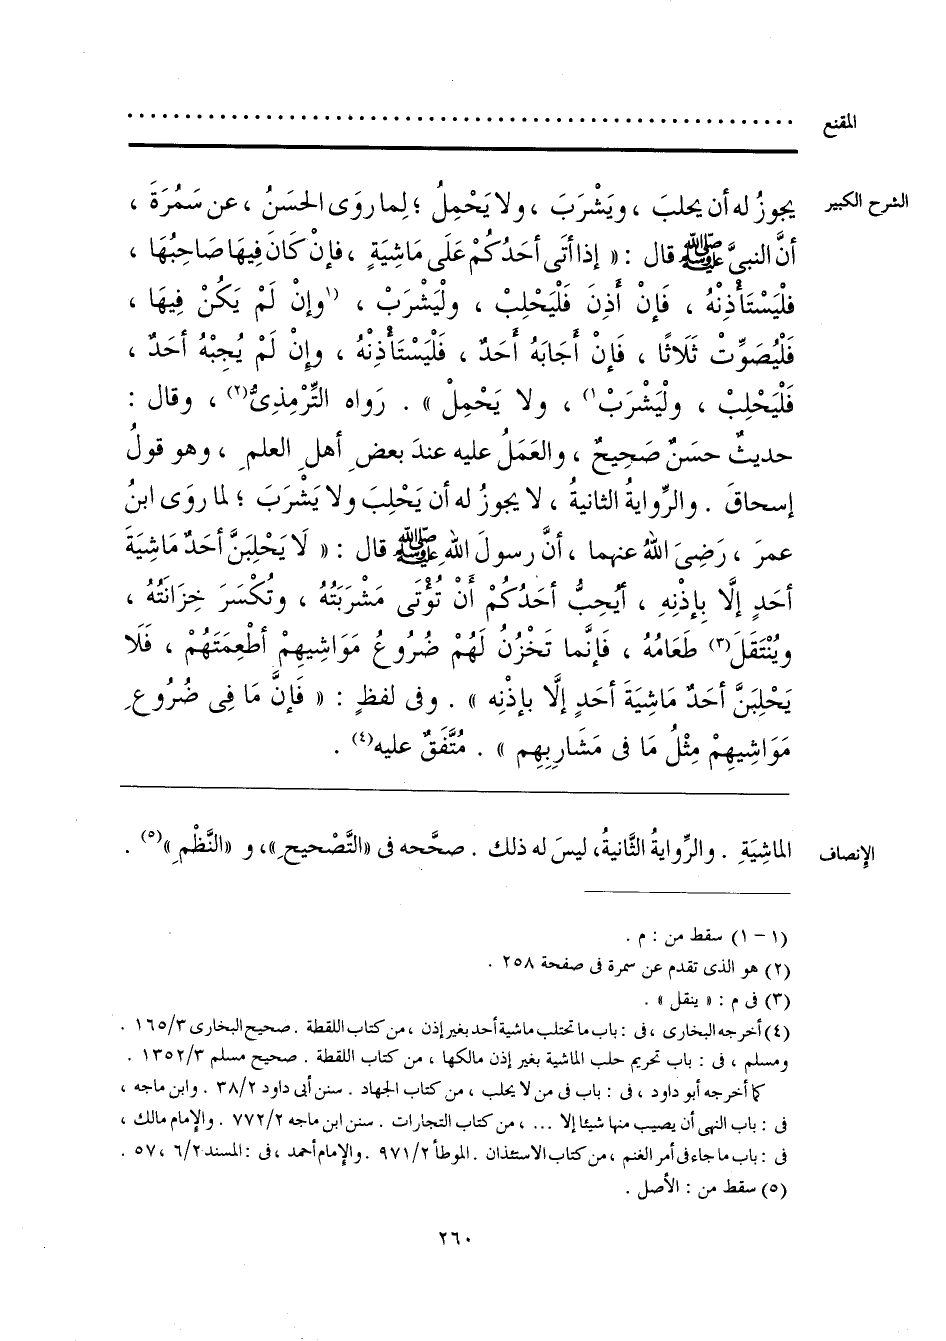 المقنع ............................................................
الشرح الكبير يجوزُ له أن يحلبَ ، ويَشْرَبَ ، ولا يَحْمِلُ ؛ لِما روَى الحسَنُ ، عن سَمُرَةَ ،
أنَّ النبيَّ ﷺ قال : « إذا أتَى أحَدُكُمْ عَلَى مَاشِيَةٍ ، فإنْ كَانَ فِيهَا صَاحِبُهَا ،
فلْيَسْتَأْذِنْهُ ، فَإنْ أَذِنَ فَلْيَحْلِبْ ، ولْيَشْرَبْ ، (١وإنْ لَمْ يَكُنْ فِيهَا ،
فَلْيُصَوِّتْ ثَلَاثًا ، فَإنْ أَجَابَهُ أَحَدٌ ، فَلْيَسْتَأْذِنْهُ ، وإِنْ لَمْ يُجِبْهُ أحَدٌ ،
فَلْيَحْلِبْ ، ولْيَشْرَبْ١) ، ولا يَحْمِلْ » . رَواه التِّرْمِذِىُّ(٢) ، وقال :
حديثٌ حسَنٌ صَحِيحٌ ، والعَمَلُ عليه عندَ بعضِ أهلِ العلمِ ، وهو قولُ
إسحاقَ . والرِّوايةُ الثانيةُ ، لا يجوزُ له أن يَحْلِبَ ولا يَشْرَبَ ؛ لما روَى ابنُ
عمرَ ، رَضِىَ اللهُ عنهما ، أنَّ رسولَ اللهِ ﷺ قال : « لَا يَحْلِبَنَّ أحَدٌ مَاشِيَةَ
أحَدٍ إلَّا بإذْنِهِ ، أيُحِبُّ أحَدُكُمْ أَنْ تُؤْتَى مَشْرَبَتُهُ ، وتُكْسَرَ خِزَانَتُهُ ،
ويُنْتَقَلَ(٣) طَعَامُهُ ، فَإنَّما تَخْزُنُ لَهُمْ ضُرُوعُ مَوَاشِيهِمْ أطْعِمَتَهُمْ ، فَلَا
يَحْلِبَنَّ أحَدٌ مَاشِيَةَ أحَدٍ إلَّا بإذْنِه » . وفى لفظٍ : « فَإنَّ مَا فِى ضُرُوعِ
مَوَاشِيهِمْ مِثْلُ مَا فى مَشَارِبِهِم » . مُتَّفَقٌ عليه(٤) .
الإنصاف الماشِيَةِ . والرِّوايةُ الثَّانيةُ، ليسَ له ذلك . صحَّحه فى «التَّصْحيحِ»، و «النَّظْمِ»(٥) .
(١ - ١) سقط من : م .
(٢) هو الذى تقدم عن سمرة فى صفحة ٢٥٨ .
(٣) فى م : « ينقل » .
(٤) أخرجه البخارى ، فى : باب ما تحتلب ماشية أحد بغير إذن ، من كتاب اللقطة . صحيح البخارى ٣/ ١٦٥ .
ومسلم ، فى : باب تحريم حلب الماشية بغير إذن مالكها ، من كتاب اللقطة . صحيح مسلم ٣/ ١٣٥٢ .
كما أخرجه أبو داود ، فى : باب فى من لا يحلب ، من كتاب الجهاد . سنن أبى داود ٢/ ٣٨ . وابن ماجه ،
فى : باب النهى أن يصيب منها شيئا إلا ... ، من كتاب التجارات . سنن ابن ماجه ٢/ ٧٧٢ . والإمام مالك ،
فى : باب ما جاء فى أمر الغنم ، من كتاب الاستئذان . الموطأ ٢/ ٩٧١ . والإمام أحمد ، فى : المسند ٢/ ٦ ، ٥٧ .
(٥) سقط من : الأصل .
٢٦٠